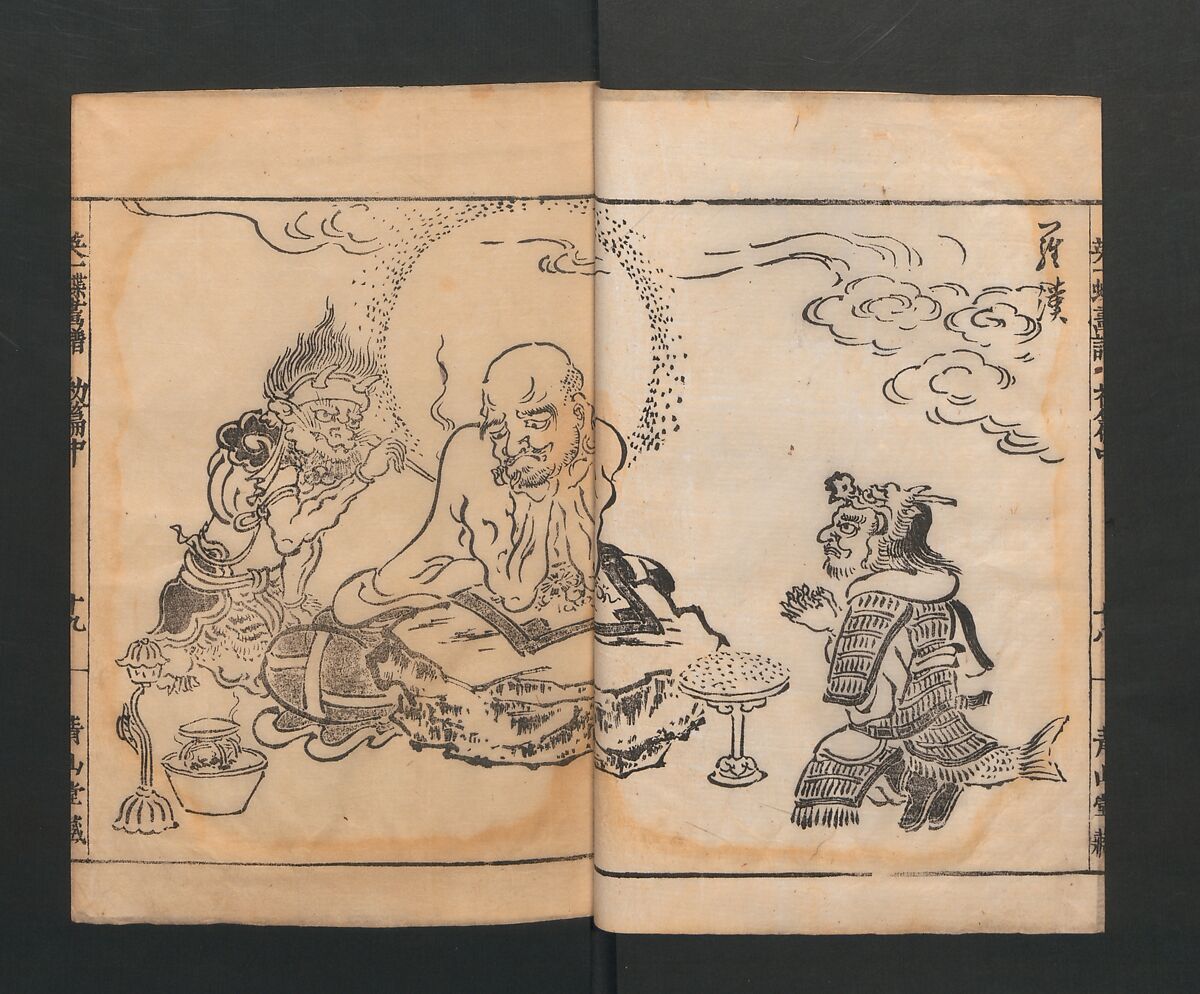 英一蝶畫譜 初篇中 十八 青山堂藏
羅漢
英一蝶畫譜 初篇中 十九 青山堂藏